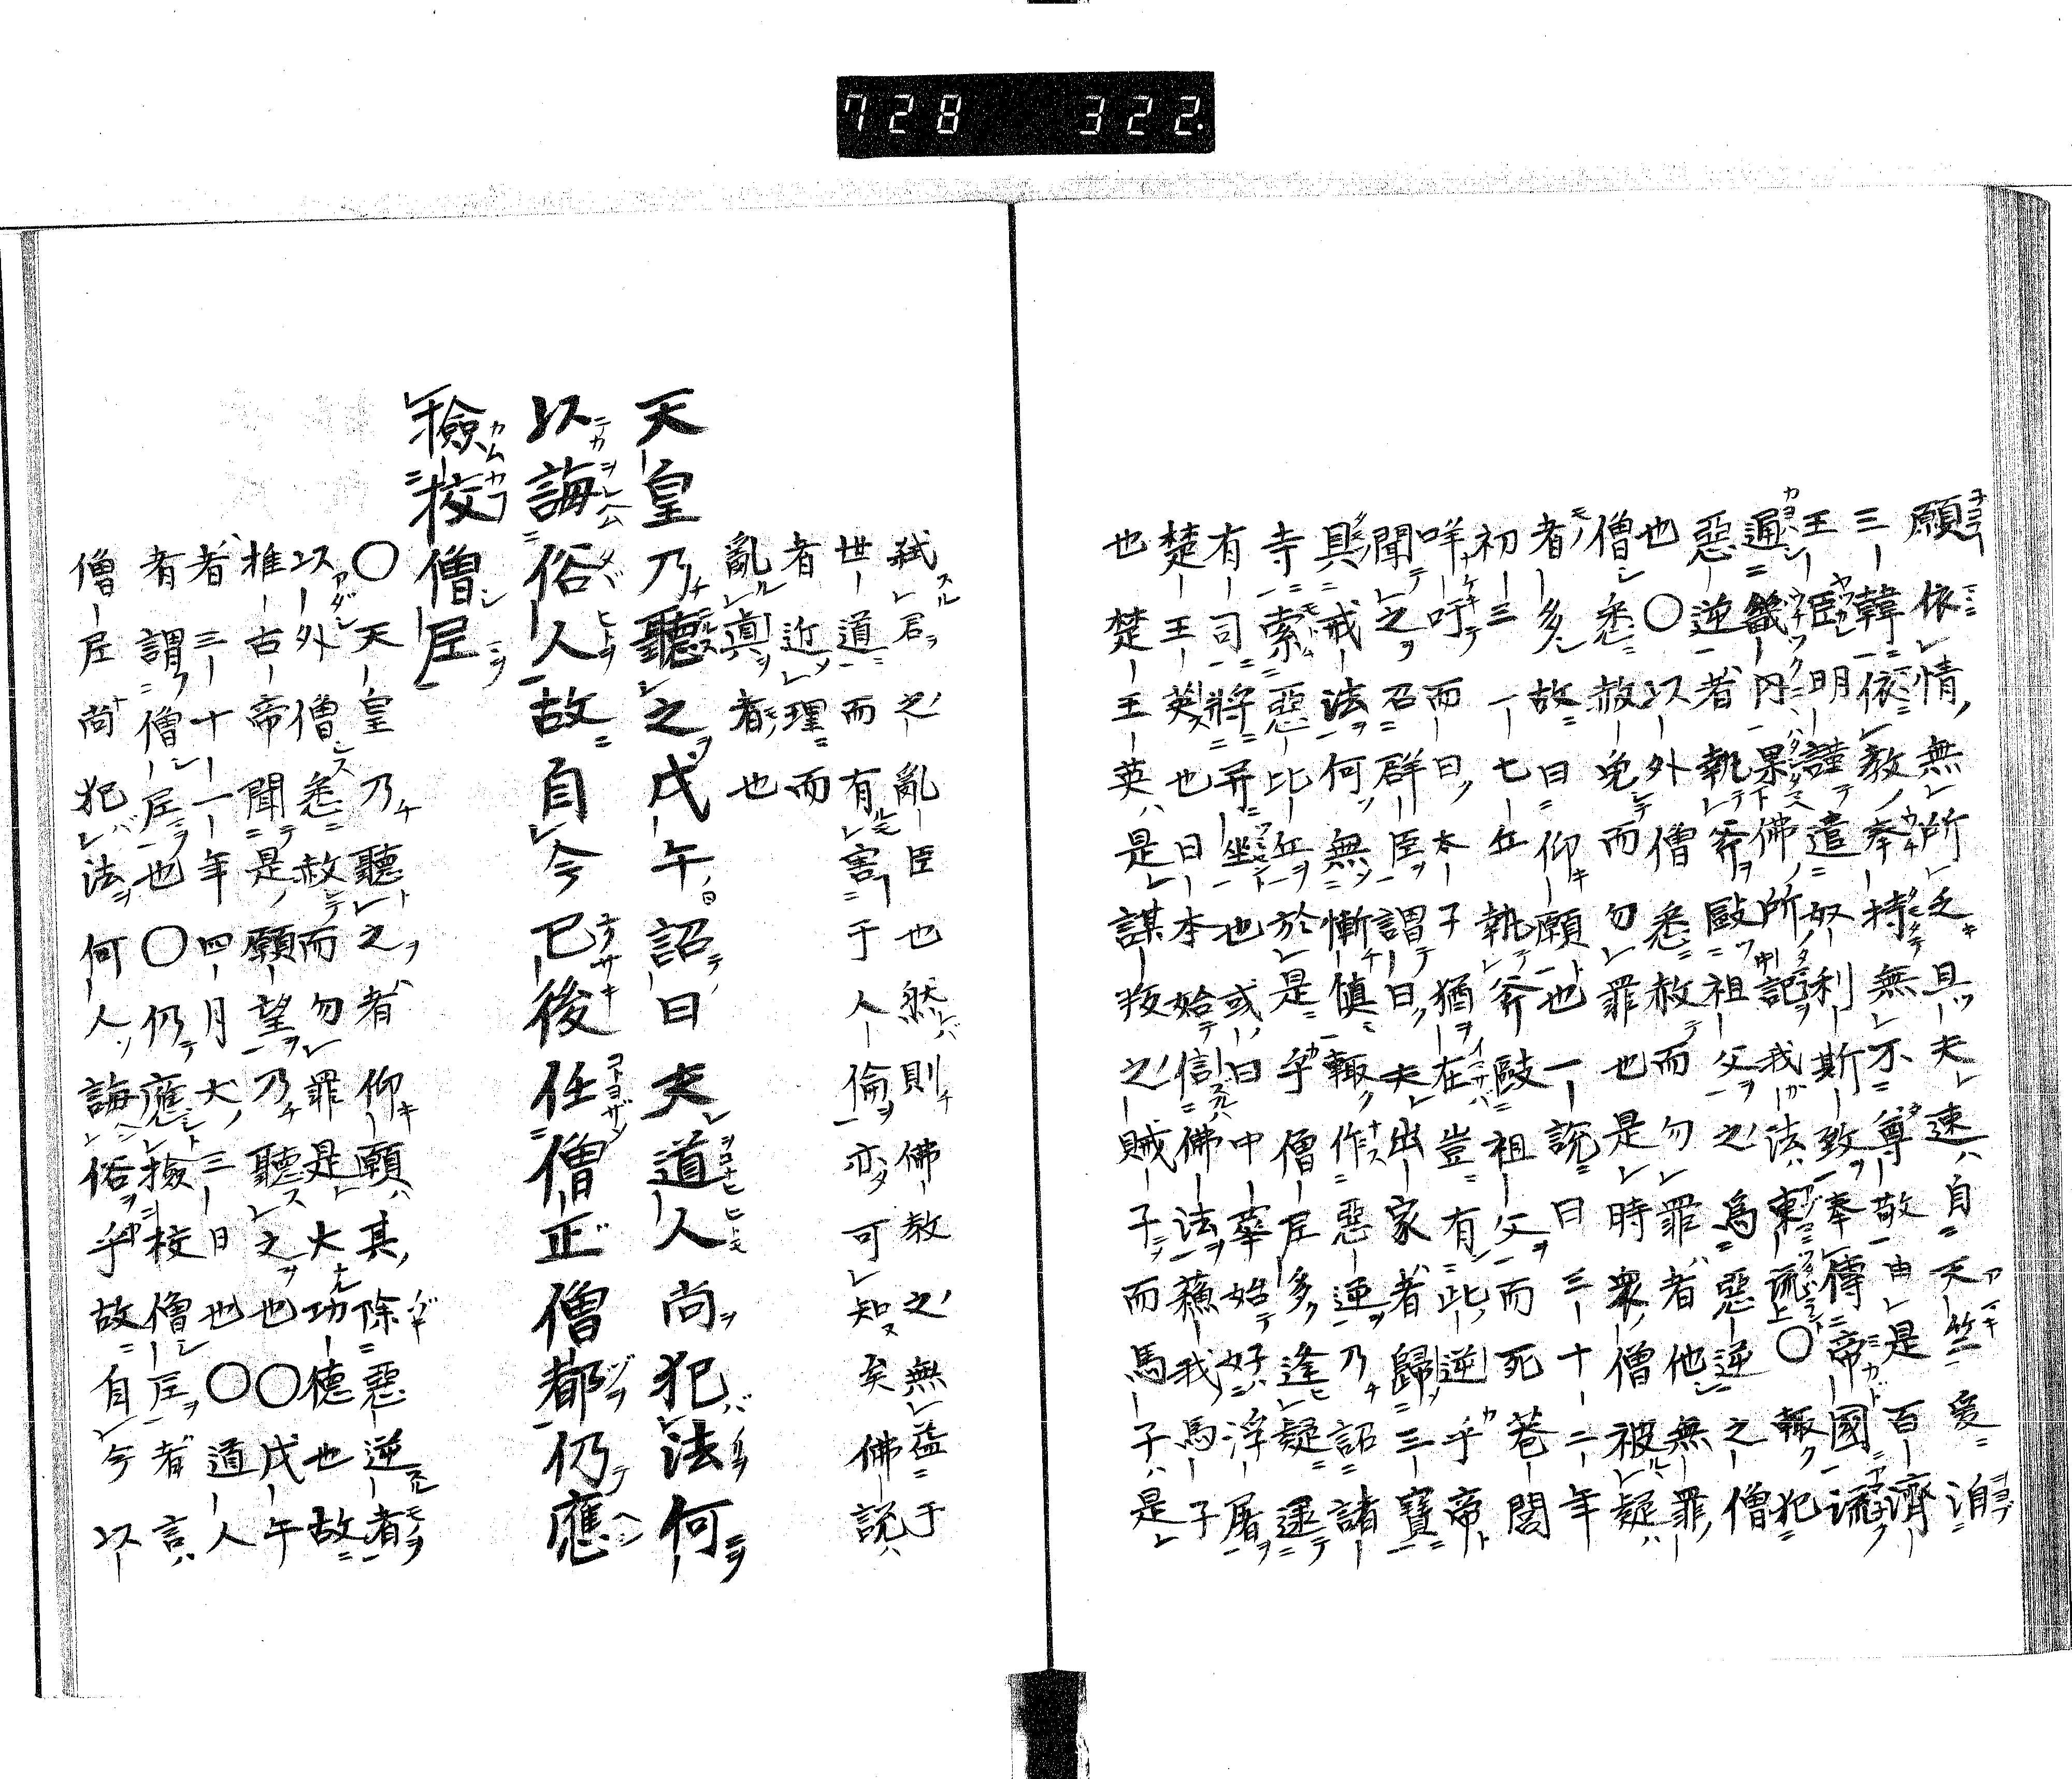 728 322
願依情無所乏且夫速自天竺爰洎
三韓依教奉持無不尊敬由是百濟
王臣明謹遣奴唎斯致奉傳帝國流
通畿内果佛所記我法東流上〇輙犯
惡逆者執斧毆祖父之爲惡逆之僧
也〇以外僧悉赦而勿罪者他無罪
僧悉赦免而勿罪也是時衆僧被疑
者多故曰仰願也一説曰三十二年
初三一七丘執斧毆祖父而死巷閭
咩吁而曰本子猶在豈有此逆乎帝
聞之召群臣謂曰夫出家者歸三寶
具戒法何無慚愼輙作惡逆乃詔諸
寺索惡比丘於是乎僧尼多逢疑逮
有司將并坐也或曰中華始好浮屠
楚王英也日本始信佛法蘓我馬子
也楚王英是謀叛之賊子而馬子是
弑君之亂臣也然則佛教之無益于
世道而有害于人倫亦可知矣佛説
者近理而
亂眞者也
天皇乃聽之戊午詔曰夫道人尚犯法何
以誨俗人故自今已後任僧正僧都仍應
檢挍僧尼
〇天皇乃聽之者仰願其除惡逆者
以外僧悉赦而勿罪是大功德也故
推古帝聞是願望乃聽之也〇戊午
者三十一年四月大三日也〇道人
者謂僧尼也〇仍應檢校僧尼者言
僧尼尚犯法何人誨俗乎故自今以